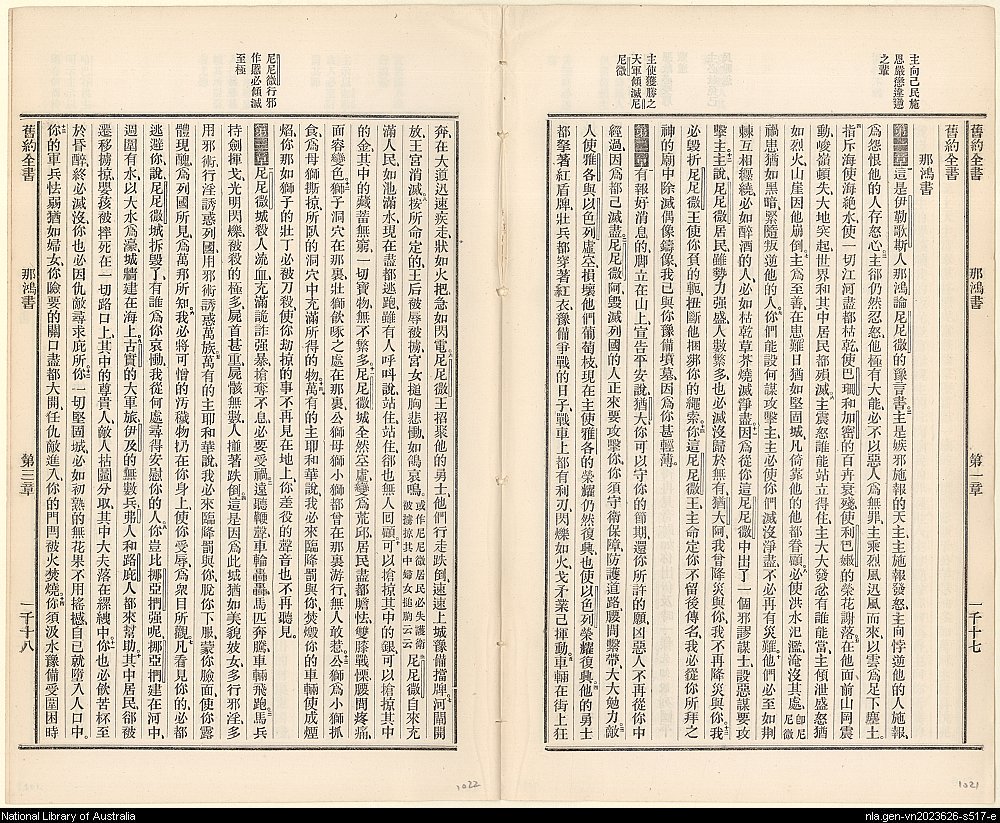 舊約全書 那鴻書 第一章 一千十七
舊約全書
那鴻書
主向己民施
恩嚴懲違逆
之輩
第一章 這是伊勒歌斯人那鴻論尼尼微的豫言書主是嫉邪施報的天主主施報發怒主向悖逆他的人施報、
爲怨恨他的人存怒心主卻仍然忍怒他極有大能必不以惡人爲無罪主乘烈風迅風而來以雲爲足下塵土。
指斥海使海絕水使一切江河盡都枯乾使巴珊和加密的百卉衰殘使利巴嫩的榮花謝落在他面前山岡震
動峻嶺頓失大地突起世界和其中居民都殞滅主震怒誰能站立得住主大大發忿有誰能當主傾泄盛怒猶
如烈火山崖因他崩倒主爲至善在患難日猶如堅固城凡倚靠他的他都眷顧必使洪水氾濫淹沒其處卽尼尼微
禍患猶如黑暗緊隨叛逆他的人你們能設何謀攻擊主主必使你們滅沒淨盡不必再有災難他們必至如荆
棘互相纏繞必如醉酒的人必如枯乾草芥燒滅淨盡因爲從你這尼尼微中出了一個邪謬謀士設惡謀要攻
擊主主說尼尼微居民雖勢力强盛人數繁多也必滅沒歸於無有猶大阿我曾降災與你我不再降災與你我
必毀折尼尼微王使你負的軛扭斷他捆綁你的繩索你這尼尼微王主命定你不留後傳名我必從你所拜之
神的廟中除滅偶像鑄像我與你豫備墳墓因爲你甚輕薄。
主使獲勝之
大軍傾滅尼
尼微
第二章 有報好消息的脚立在山上宣告平安說猶大你可以守你的節期還你所許的願凶惡人不再從你中
經過因爲都已滅盡尼尼微阿毀滅列國的人正來要攻擊你你須守衞保障防護道路腰間緊帶大大勉力敵
人使雅各與以色列虛空損壞他們葡萄枝現在主使雅各的榮耀仍然復興也使以色列榮耀復興他的勇士
都擎著紅盾牌壯兵都穿著紅衣豫備爭戰的日子戰車上都有利刃閃爍如火戈矛業已揮動車輛在街上狂
奔在大道迅速疾走狀如火把急如閃電尼尼微王招聚他的勇士他們行走跌倒速速上城豫備擋牌河閘開
放王宮消滅按所命定的王后被辱被擄宮女搥胸悲慟如鴿哀鳴或作尼尼微居民必失護衞被擄掠其中婦女搥胸云云尼尼微自來充
滿人民如池滿水現在盡都逃跑雖有人呼呌說站住站住卻也無人回顧可以搶掠其中的銀可以搶掠其中
的金其中的藏蓄無窮一切寶物無不繁多尼尼微城全然空虛變爲荒邱居民盡都膽怯雙膝戰慄腰間疼痛
面容變色獅子洞穴在那裏壯獅飲啄之處在那裏公獅母獅小獅都曾在那裏游行無人敢惹公獅爲小獅抓
食爲母獅撕掠所臥的洞穴中充滿所得的物萬有的主耶和華說我必來臨降罰與你焚燬你的車輛使成煙
焰你那如獅子的壯丁必被刀殺使你刧掠的事不再見在地上你差役的聲音也不再聽見。
尼尼微行邪
作慝必傾滅
至極
第三章 尼尼微城殺人流血充滿詭詐强暴搶奪不息必要受禍遠聽鞭聲車輪轟轟馬匹奔騰車輛飛跑馬兵
持劍揮戈光明閃爍被殺的極多屍首甚重屍骸無數人撞著跌倒這是因爲此城猶如美貌妓女多行邪淫多
用邪術行淫誘惑列國用邪術誘惑萬族萬有的主耶和華說我必來臨降罰與你脫你下服蒙你臉面使你露
體現醜爲列國所見爲萬邦所知我必將可憎的汚穢物扔在你身上使你受辱爲衆目所觀凡看見你的必都
逃避你說尼尼微城拆毀了有誰爲你哀慟我從何處尋得安慰你的人你豈比挪亞捫强呢挪亞捫建在河中、
週圍有水以大水爲濠城牆建在海上古實的大軍旅伊及的無數兵弗人和路庇人都來幫助其中居民卻被
遷移擄掠嬰孩被摔死在一切路口上其中的尊貴人敵人拈鬮分取其中大夫落在縲絏中你也必飲苦杯至
於昏醉終必滅沒你也必因仇敵尋求庇所你一切堅固城必如初熟的無花果不用搖撼自己就墮入人口中。
你的軍兵怯弱猶如婦女你險要的關口盡都大開任仇敵進入你的門閂被火焚燒你須汲水豫備受圍困時
舊約全書 那鴻書 第三章 一千十八
1022
1021
National Library of Australia
nla.gen-vn2023626-s517-e